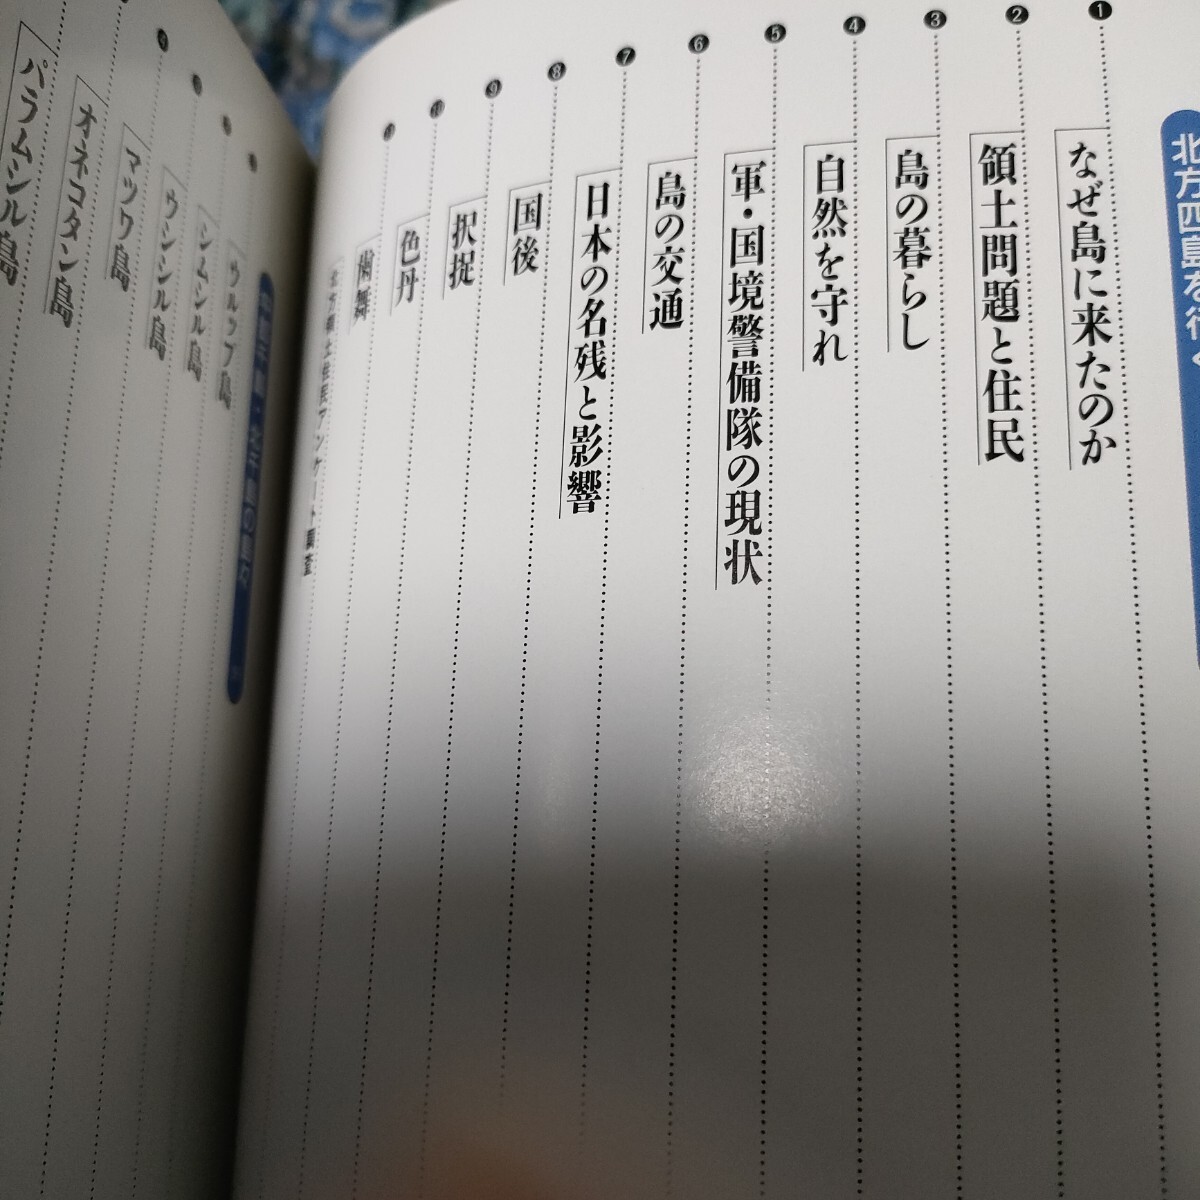 北方四島を行く
❶ なぜ島に来たのか
❷ 領土問題と住民
❸ 島の暮らし
❹ 自然を守れ
❺ 軍・国境警備隊の現状
❻ 島の交通
❼ 日本の名残と影響
❽ 国後
❾ 択捉
❿ 色丹
⓫ 歯舞
北方領土住民アンケート調査
中部千島・北千島の島々
ウルップ島
シムシル島
ウシシル島
マツワ島
オネコタン島
パラムシル島